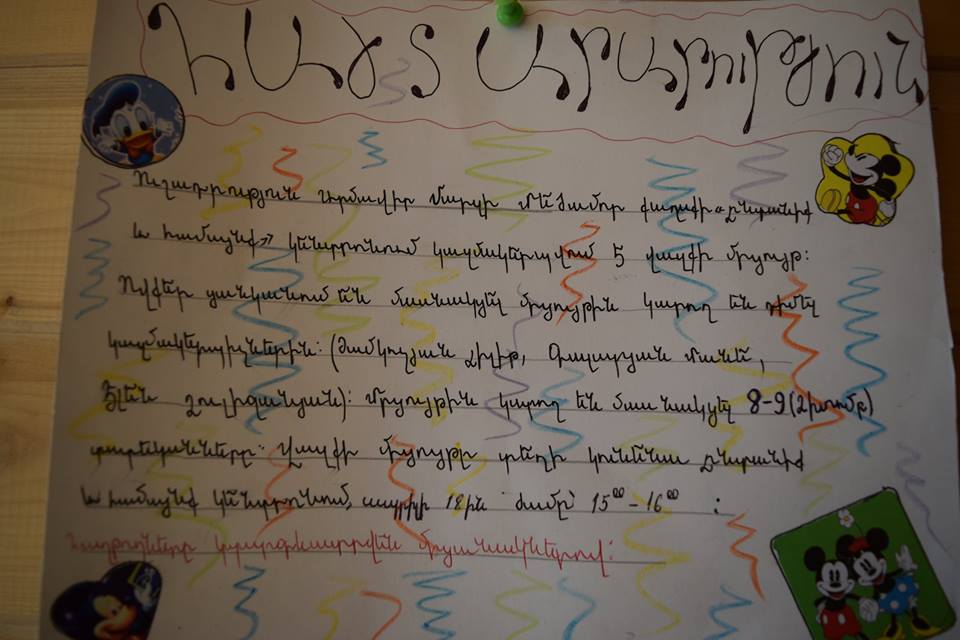 ՀԱՅՏԱՐԱՐՈՒԹՅՈՒՆ
Ուշադրություն Արմավիր մարզի մեծամոր քաղաքի «ընտանիք
և համայնք» կենտրոնում կազմակերպվում 5 վազքի մրցույթ:
Ովքեր ցանկանում են մասնակցել մրցույթին կարող են դիմել
կազմակերպիչներին: (Համկոչյան Ֆիլիթ, Գալստյան Մանե,
Էլեն Զուլիգանյան): մրցույթին կարող են մասնակցել 8-9 (2խումբ)
տարեկանները: Վազքի մրցույթը տեղի կունենա ընտանիք
և համայնք կենտրոնում, ապրիլի 18ին ժամը՝ 15⁰⁰ - 16⁰⁰ :
Հաղթողները կպարգևատրվեն մրցանակներով: